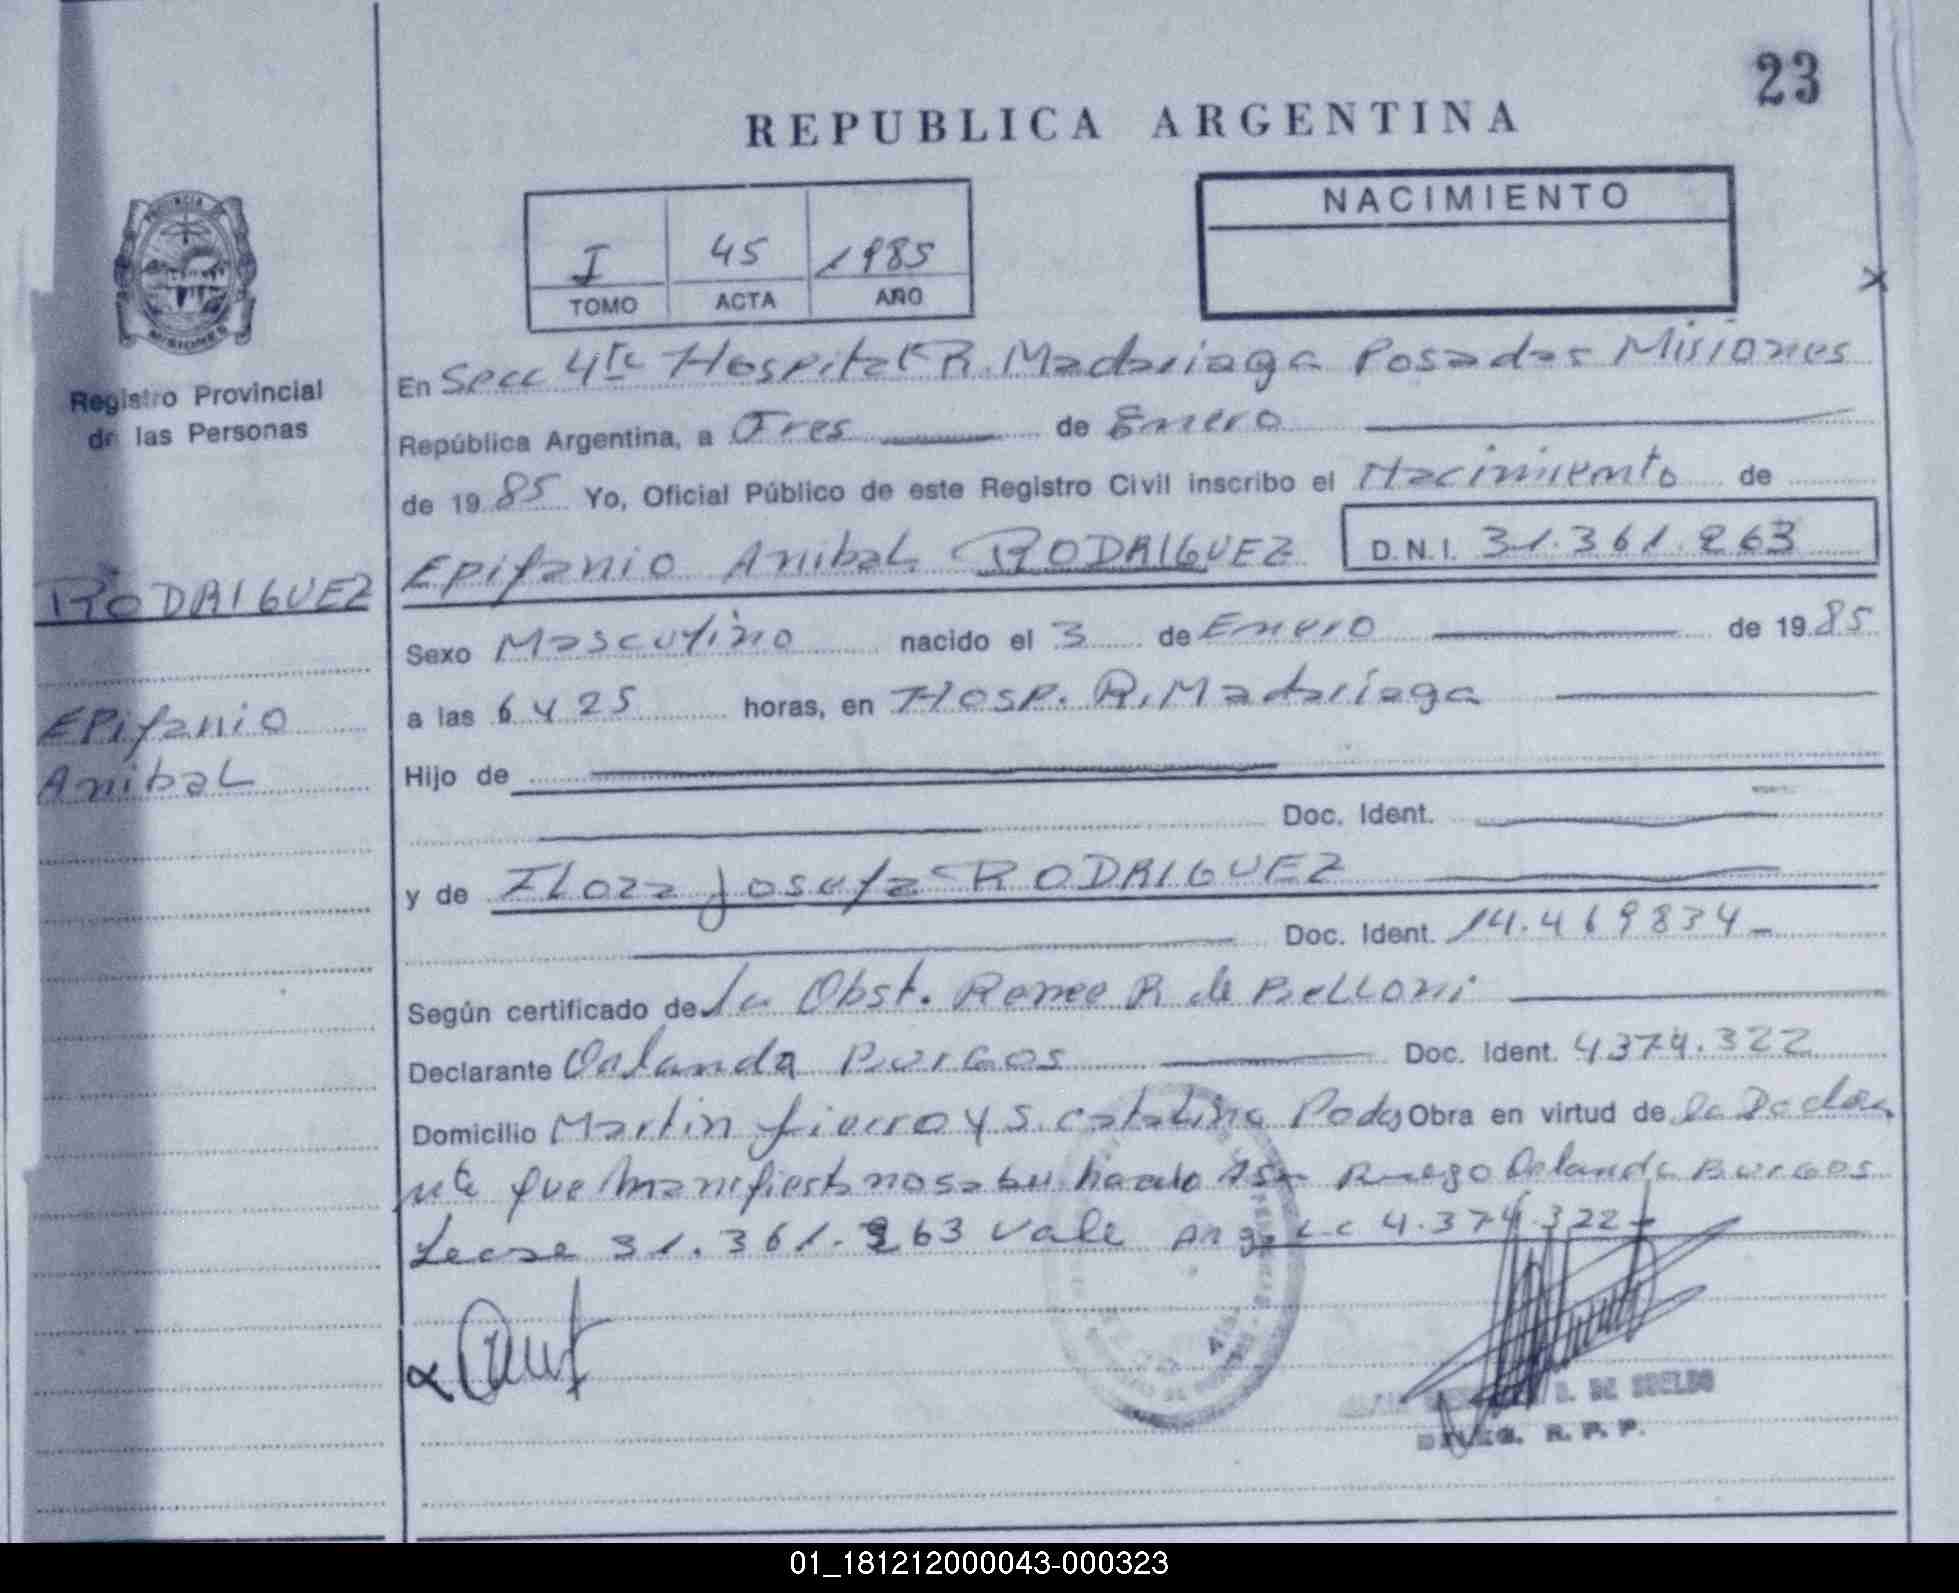 23
REPUBLICA ARGENTINA
PROVINCIA DE MISIONES
I 45 1985
TOMO ACTA AÑO
NACIMIENTO
Registro Provincial
de las Personas
En Secc 4ta Hospital R. Madariaga Posadas Misiones
República Argentina, a Tres de Enero
de 1985 Yo, Oficial Público de este Registro Civil inscribo el Nacimiento de
Epifanio Anibal RODRIGUEZ D.N.I. 31.361.263
RODRIGUEZ
Epifanio
Anibal
Sexo Masculino nacido el 3 de Enero de 1985
a las 6 y 25 horas, en Hosp. R. Madariaga
Hijo de
Doc. Ident.
y de Josefa RODRIGUEZ
Doc. Ident. 14.469834-
Según certificado de la Obst. Renee R de Belloni
Declarante Orlanda Burgos Doc. Ident. 4374.322
Domicilio Martin fierro y S. Catalina Pdas Obra en virtud de la Declara
nte que manifiesta no saber hacerlo A Su Ruego Orlanda Burgos
Lease 31.361.263 Vale Arg. LC 4.374.322-
D. DE SOELBO
DELEG. R. P. P.
01_181212000043-000323